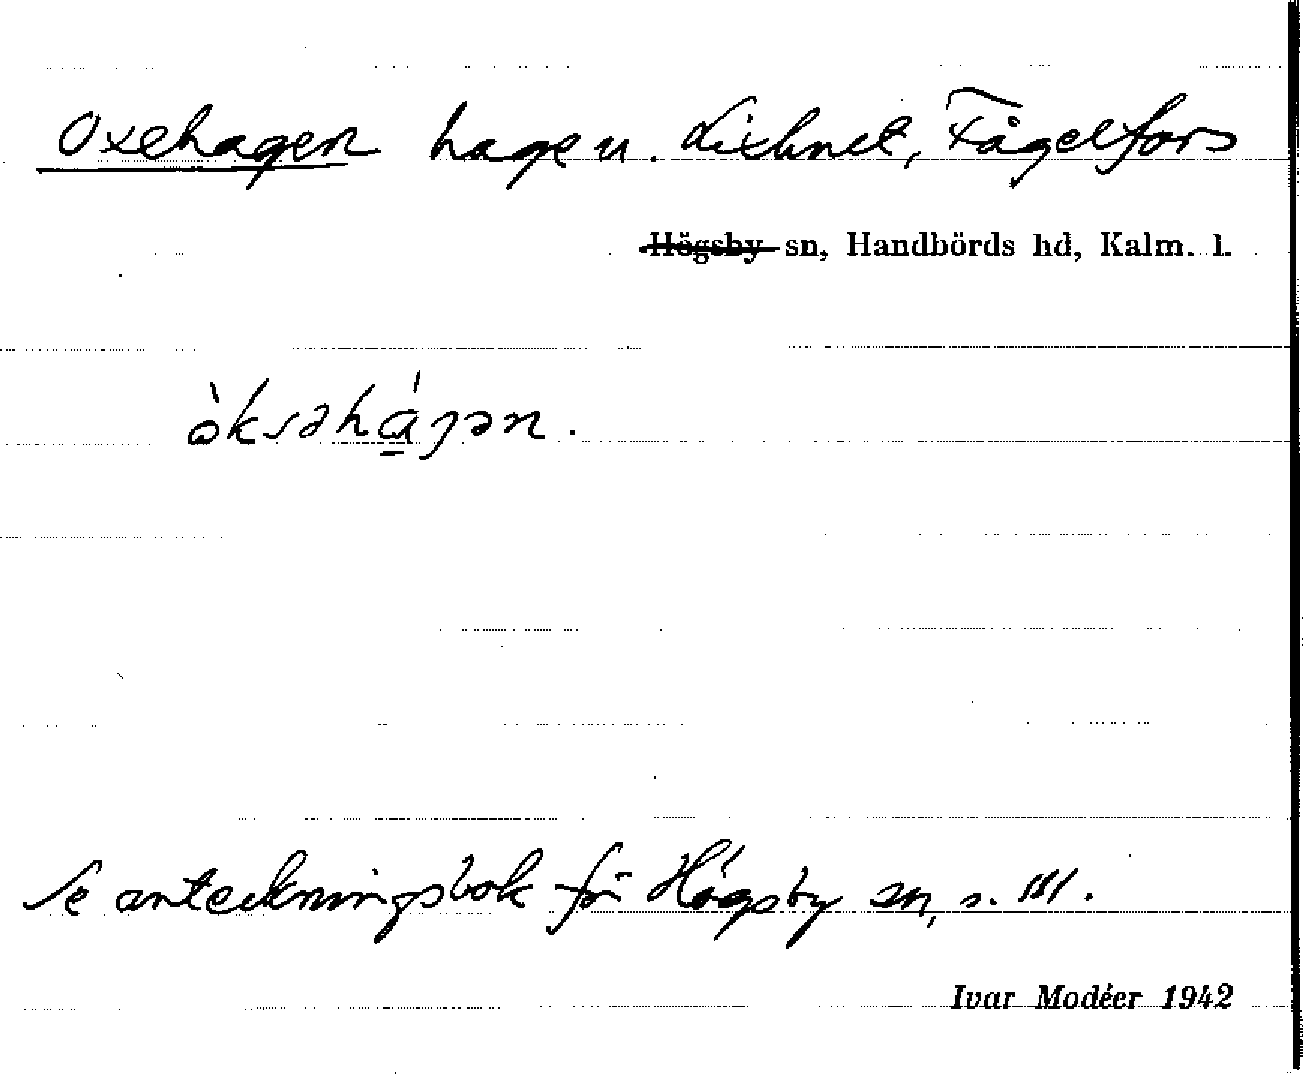 Oxehagen hage u. Lixhult, Fågelfors
Högsby sn, Handbörds hd, Kalm. l.
òksəhá̠gən.
Se anteckningsbok för Högsby sn, s. 111.
Ivar Modéer 1942